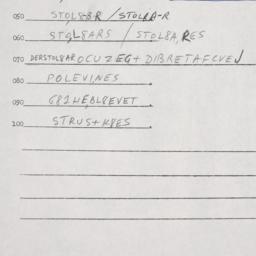 050 STOL8BR / STOLBA-R
060 STGL8ARS / STOL8A,RES
070 DERSTOL8AR OCUZEG+DIBRETAFCVEJ
080 POLEVINES
090 G81HEBL8EVET
100 STRUS+K8ES